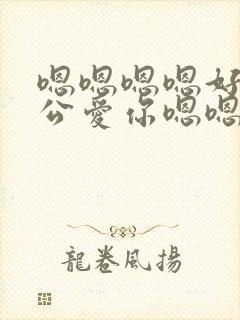 嗯嗯嗯嗯好
公爱你嗯嗯
龍卷風揚